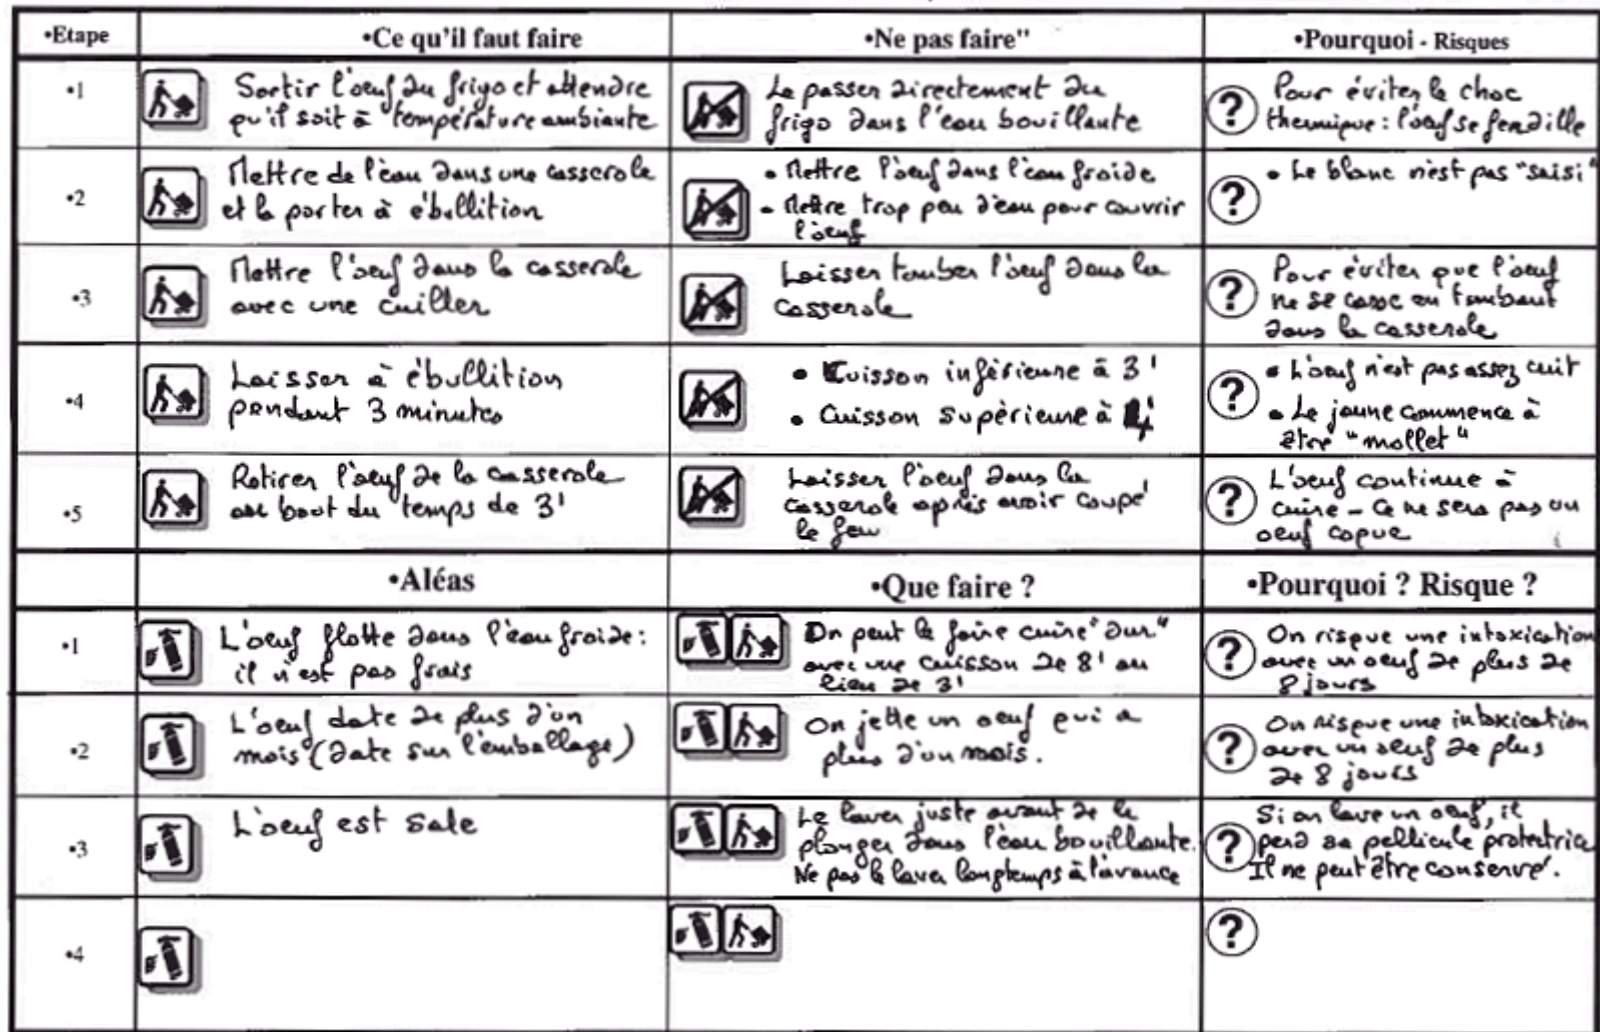 •Etape
•Ce qu'il faut faire
•Ne pas faire"
•Pourquoi - Risques
•1
Sortir l'oeuf du frigo et attendre
qu'il soit à température ambiante
Le passer directement du
frigo dans l'eau bouillante
?
Pour éviter le choc
thermique : l'oeuf se fendille
•2
Mettre de l'eau dans une casserole
et la porter à ébullition
• Mettre l'oeuf dans l'eau froide
- Mettre trop peu d'eau pour couvrir
l'oeuf
?
• Le blanc n'est pas "saisi"
•3
Mettre l'oeuf dans la casserole
avec une cuiller
Laisser tomber l'oeuf dans la
casserole
?
Pour éviter que l'oeuf
ne se casse en tombant
dans la casserole
•4
Laisser à ébullition
pendant 3 minutes
• Cuisson inférieure à 3'
• Cuisson supérieure à 4'
?
• L'oeuf n'est pas assez cuit
• Le jaune commence à
être "mollet"
•5
Retirer l'oeuf de la casserole
au bout du temps de 3'
Laisser l'oeuf dans la
casserole après avoir coupé
le feu
?
L'oeuf continue à
cuire - Ce ne sera pas un
oeuf coque
•Aléas
•Que faire ?
•Pourquoi ? Risque ?
•1
L'oeuf flotte dans l'eau froide :
il n'est pas frais
On peut le faire cuire "dur"
avec une cuisson de 8' au
lieu de 3'
?
On risque une intoxication
avec un oeuf de plus de
8 jours
•2
L'oeuf date de plus d'un
mois (date sur l'emballage)
On jette un oeuf qui a
plus d'un mois.
?
On risque une intoxication
avec un oeuf de plus
de 8 jours
•3
L'oeuf est sale
Le laver juste avant de le
plonger dans l'eau bouillante.
Ne pas le laver longtemps à l'avance
?
Si on lave un oeuf, il
perd sa pellicule protectrice
Il ne peut être conservé.
•4
?